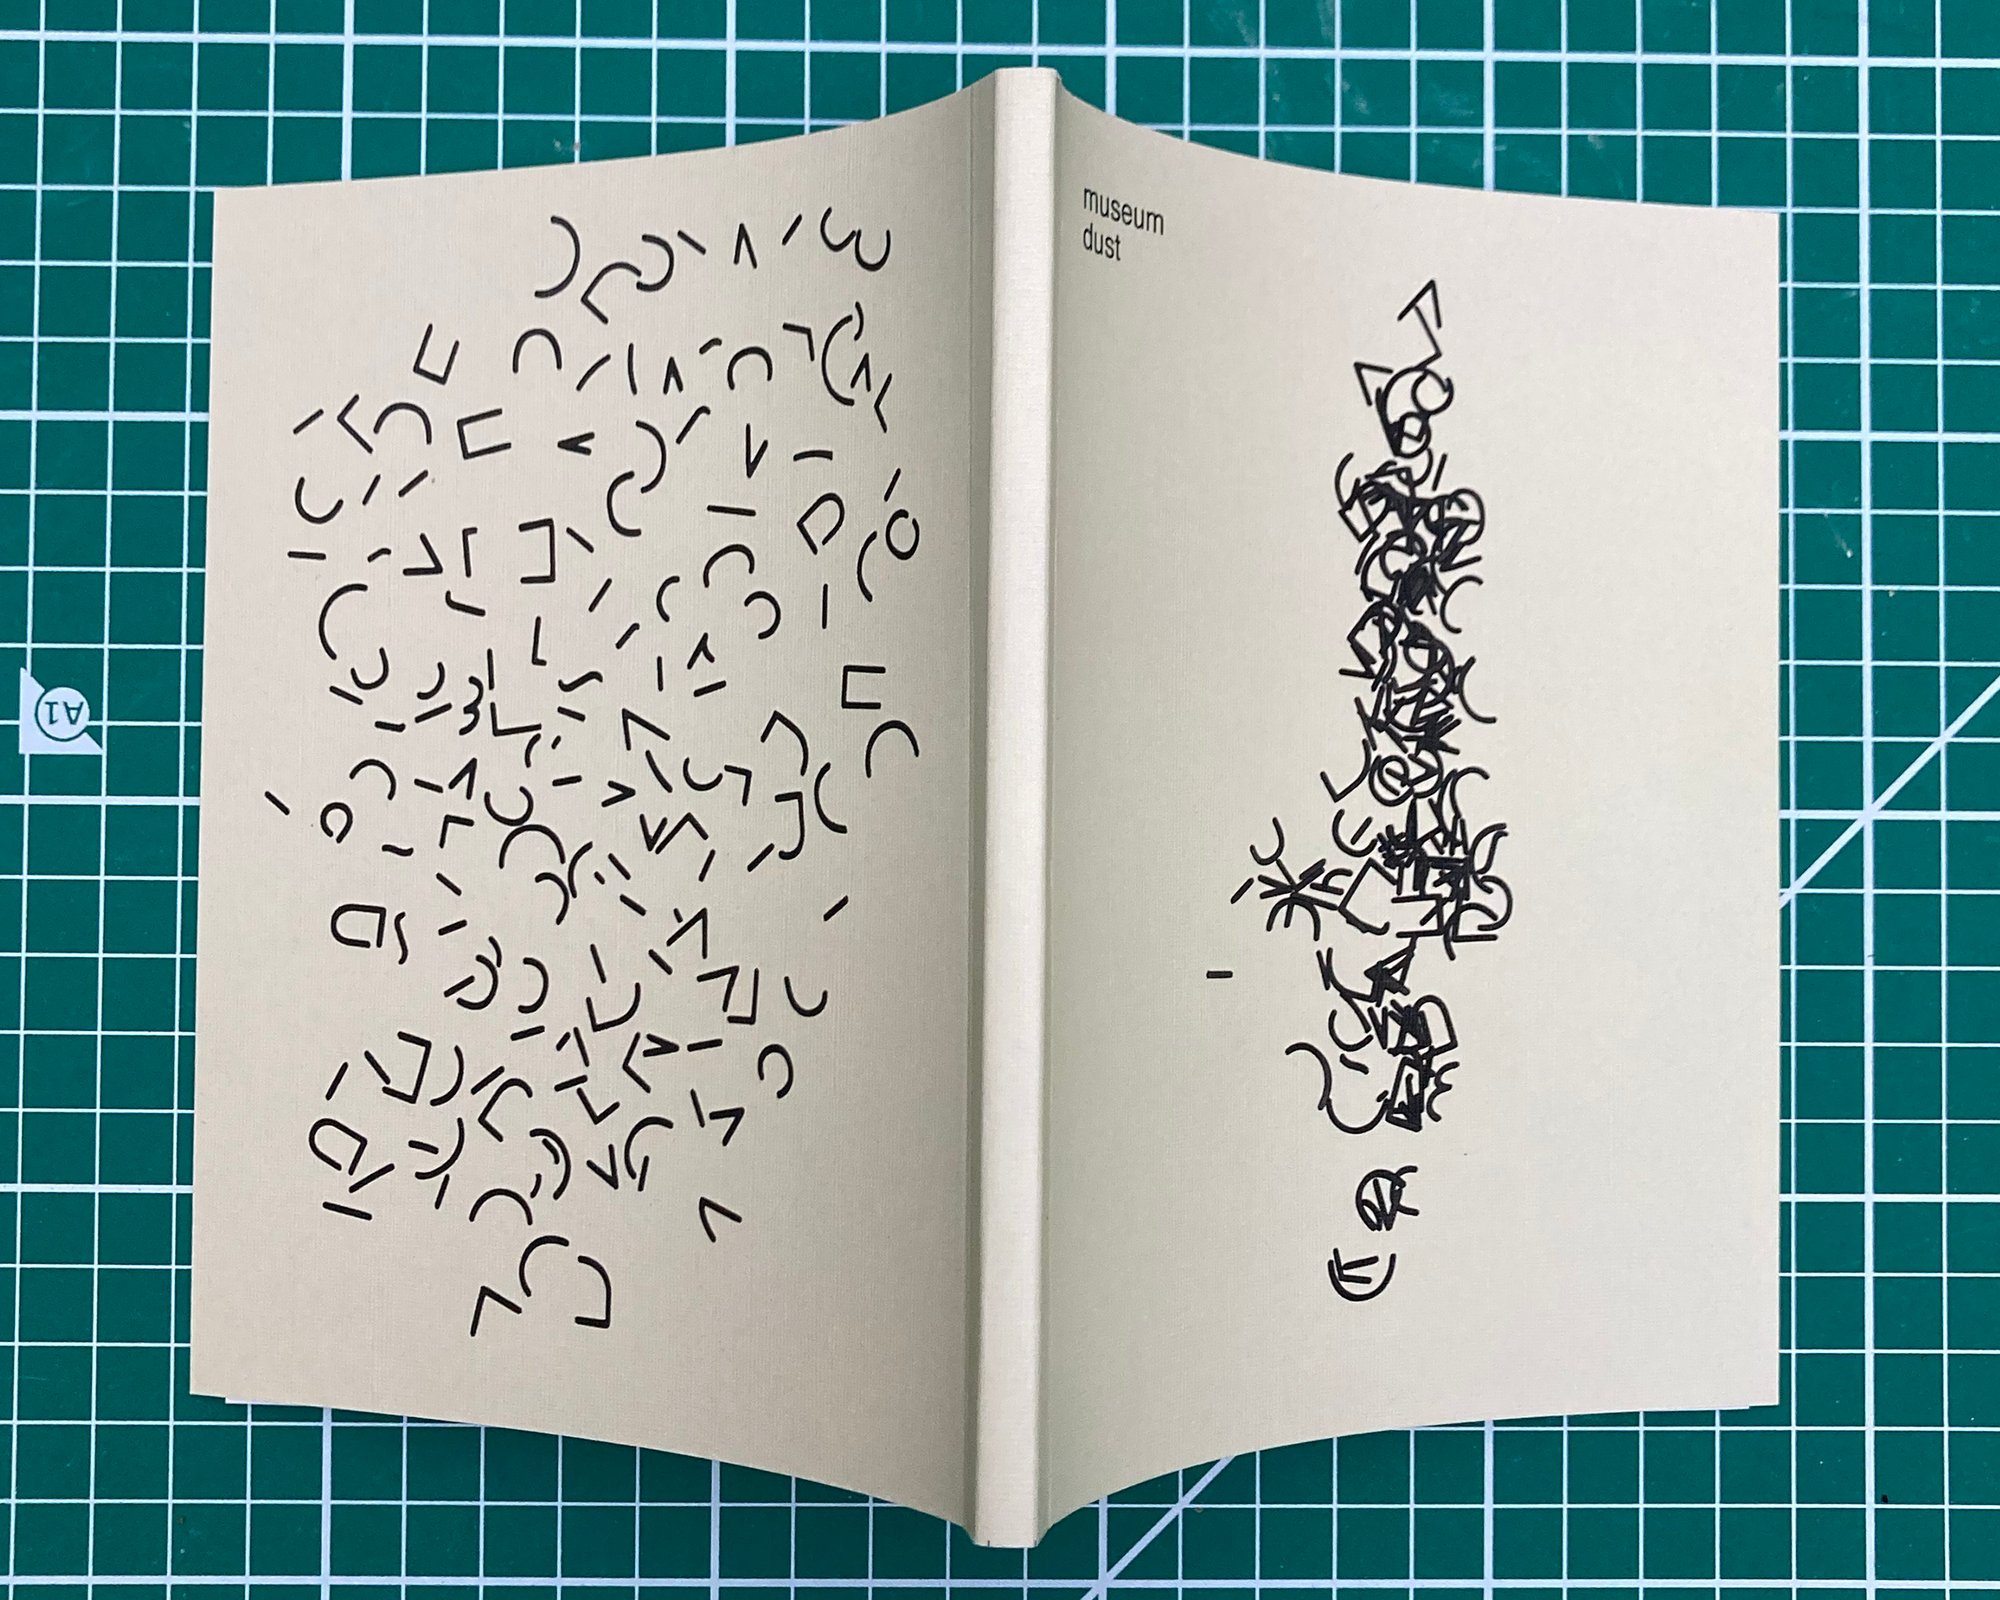 museum
dust
A1